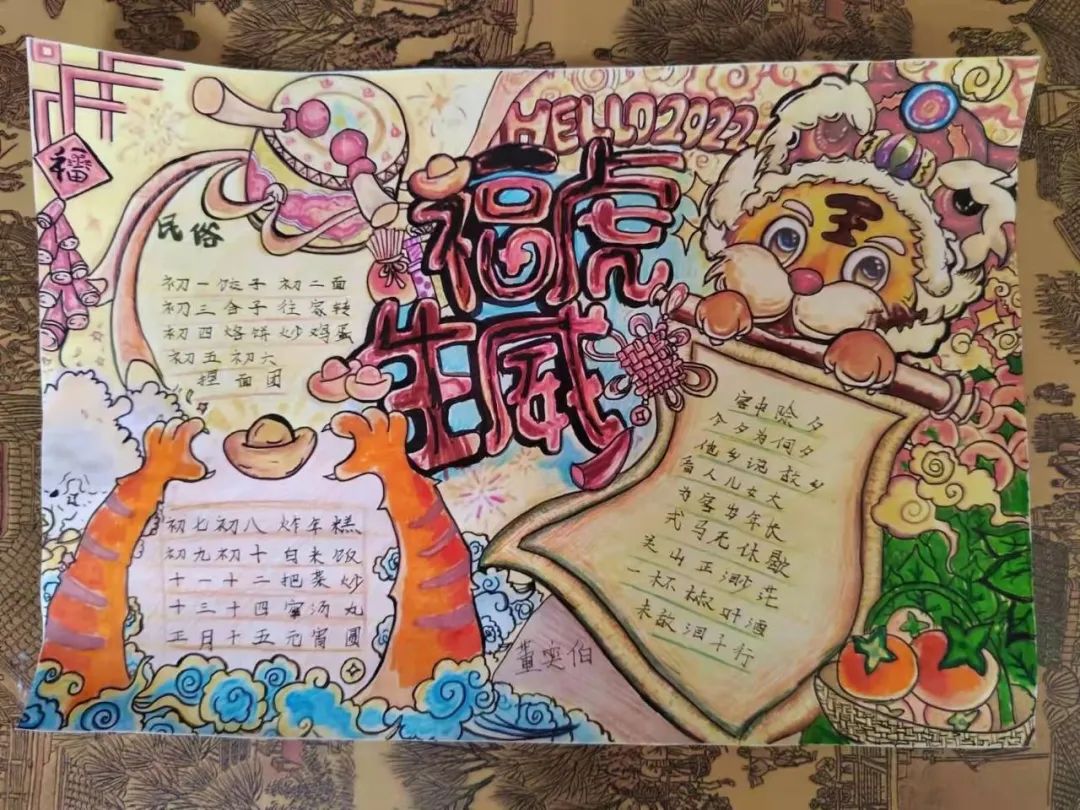 福
HELLO2022
福虎
生威
民俗
初一饺子初二面
初三合子往家转
初四烙饼炒鸡蛋
初五初六
捏面团
初七初八炸年糕
初九初十白米饭
十一十二把菜炒
十三十四宰汤丸
正月十五元宵圆
客中除夕
今夕为何夕
他乡说故乡
看人儿女大
为客岁年长
戎马无休歇
关山正渺茫
一杯椒叶酒
未敌泪千行
董奕伯